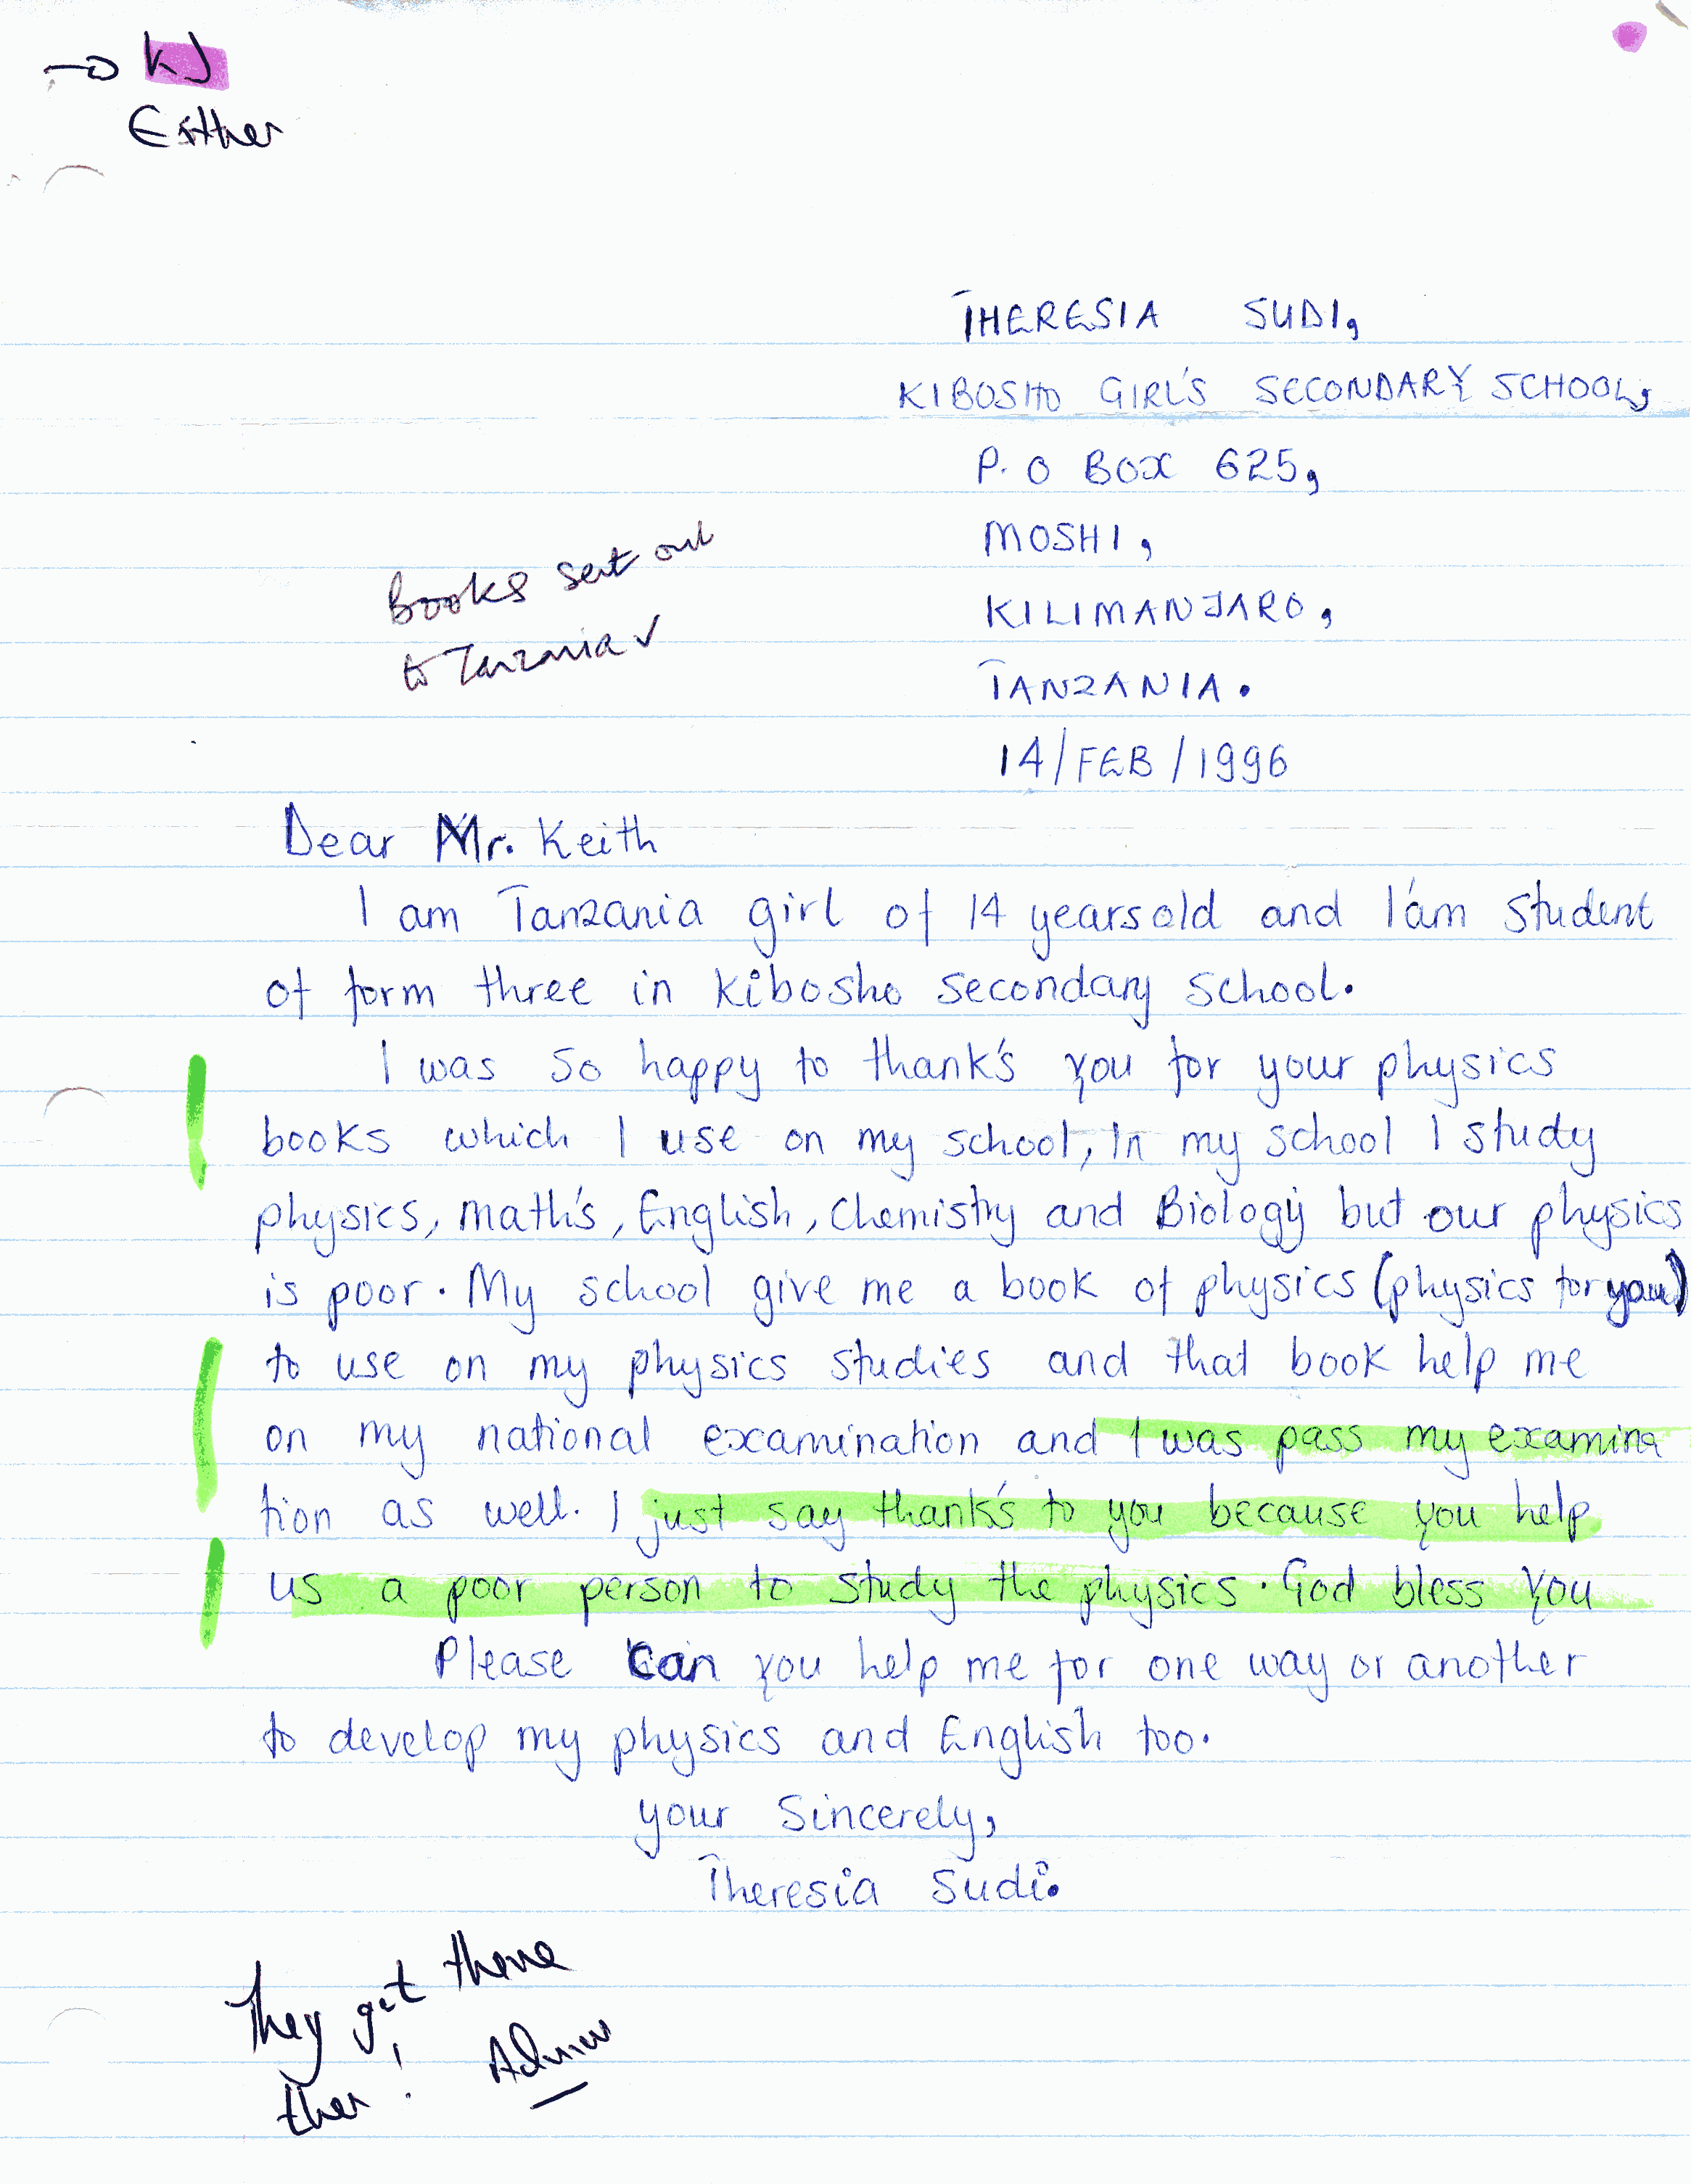 → KJ
Esther
THERESIA SUDI,
KIBOSHO GIRL'S SECONDARY SCHOOL,
P. O BOX 625,
MOSHI,
KILIMANJARO,
TANZANIA.
14/FEB/1996
Books sent out
to Tanzania ✓
Dear Mr. Keith
I am Tanzania girl of 14 years old and I'am student
of form three in Kibosho secondary school.
I was so happy to thank's you for your physics
books which I use on my school, In my school I study
physics, math's, English, Chemistry and Biology but our physics
is poor. My school give me a book of physics (physics for you)
to use on my physics studies and that book help me
on my national examination and I was pass my examina
tion as well. I just say thank's to you because you help
us a poor person to study the physics. God bless you
Please Can you help me for one way or another
to develop my physics and English too.
your Sincerely,
Theresia Sudi.
They get there
then!